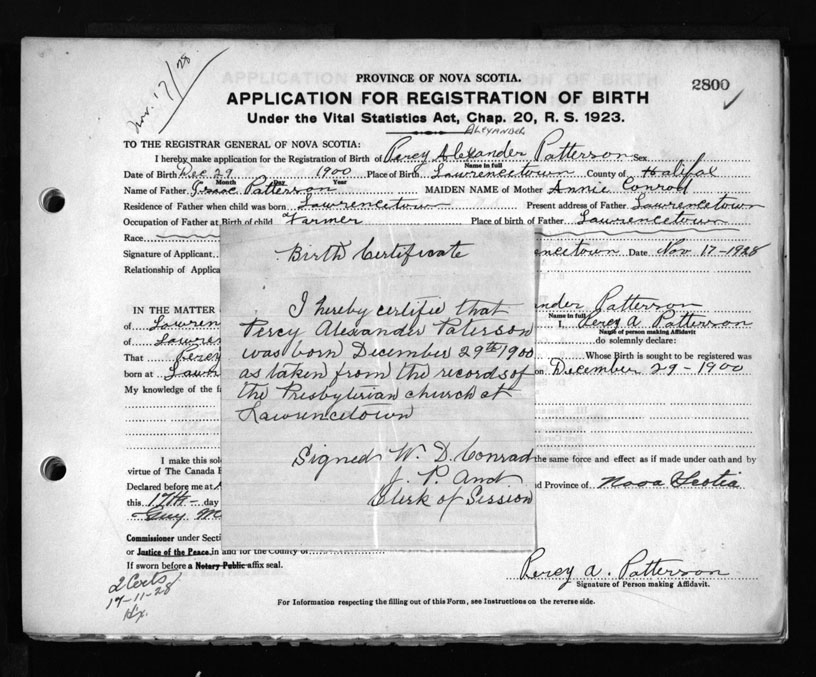 Nov. 17/28
PROVINCE OF NOVA SCOTIA.
2800
APPLICATION FOR REGISTRATION OF BIRTH
Under the Vital Statistics Act, Chap. 20, R. S. 1923.
ALEXANDER
TO THE REGISTRAR GENERAL OF NOVA SCOTIA:
I hereby make application for the Registration of Birth of Percy Alexander Patterson Sex
Name in full
Date of Birth Dec 29 1900 Place of Birth Lawrencetown County of Halifax
Month Day Year
Name of Father Isaac Patterson MAIDEN NAME of Mother Annie Conrod
Residence of Father when child was born Lawrencetown Present address of Father Lawrencetown
Occupation of Father at Birth of child Farmer Place of birth of Father Lawrencetown
Race
Signature of Applicant encetown Date Nov 17-1928
Relationship of Applica
Birth Certificate
I hereby certifie that
Percy Alexander Paterson
was born December 29th 1900
as taken from the records of
the Presbyterian church at
Lawrencetown
Signed W. D. Conrad
J. P. And
Clerk of Session
IN THE MATTER nder Patterson
Name in full
of Lawren I, Percy A Patterson
Name of person making Affidavit
of Lawren do solemnly declare:
That Percy Whose Birth is sought to be registered was
born at Lawr on December 29-1900
My knowledge of the f
I make this sol the same force and effect as if made under oath and by
virtue of The Canada E
Declared before me at d Province of Nova Scotia
this 17th day
Guy M
Commissioner under Secti
or Justice of the Peace, in and for the County of
If sworn before a Notary Public affix seal.
2 Certs
17-11-28
Hx.
Percy A. Patterson
Signature of Person making Affidavit.
For Information respecting the filling out of this Form, see Instructions on the reverse side.